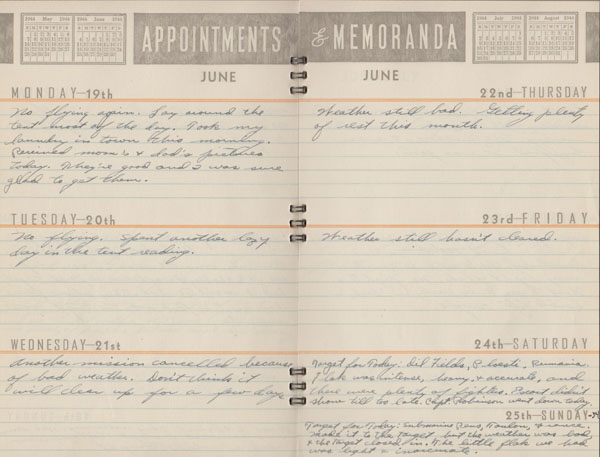 APPOINTMENTS
JUNE
MONDAY—19th
No flying again. Lay around the
tent most of the day. Took my
laundry in town this morning.
Received mom's & dad's pictures
today. They're good and I was sure
glad to get them.
TUESDAY—20th
No flying. Spent another lazy
day in the tent reading.
WEDNESDAY—21st
Another mission cancelled because
of bad weather. Don't think it
will clear up for a few days
& MEMORANDA
JUNE
22nd—THURSDAY
Weather still bad. Getting plenty
of rest this month.
23rd—FRIDAY
Weather still hasn't cleared.
24th—SATURDAY
Target for Today: Oil Fields, Ploesti, Rumania.
Flak was intense, heavy, & accurate, and
there were plenty of fighters. Escort didn't
show till too late. Capt. Robinson went down today.
25th—SUNDAY
Target for Today: Submarine Pens, Toulon, &
make it to the target, but the weather was bad
& the target closed in. The little flak we had
was light & inaccurate.